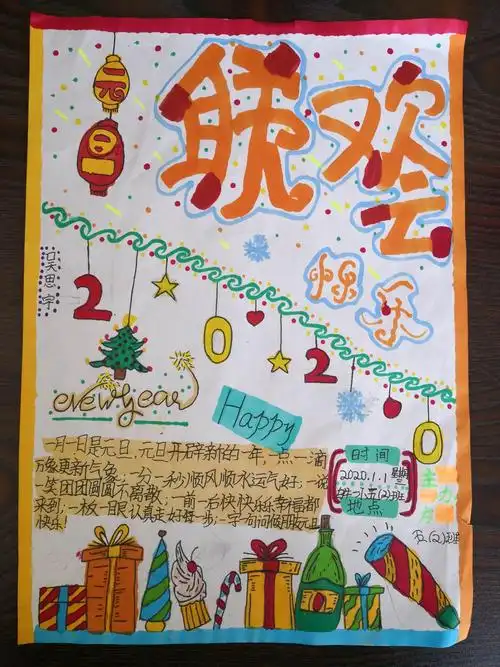 元旦
联欢会
快乐
吴思宇
2020
New year
Happy
一月一日是元旦,元旦开辟新的一年,一点一滴
万象更新气象,一分一秒顺风顺水运气好;一谈
一笑团团圆圆不离散;一前一后快快乐乐幸福都
来到;一板一眼认真走好每一步;一字一句问候朋友元旦
快乐!
时间
2020.1.1 星期三
一小五(2)班
地点
主办方
五(2)班